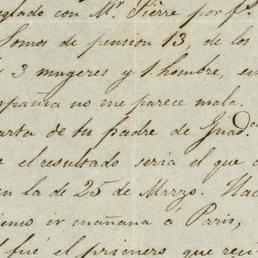 glado con Mr. Pierre por fs.
Somos de pension 13, de los
3 mugeres y 1. hombre, en
pañia no me parece mala.
arta de tu padre de Guad.
e el resultado seria el que
en la de 25 de Marzo. Hac
ir mañana á Paris,
fué el primero que reci